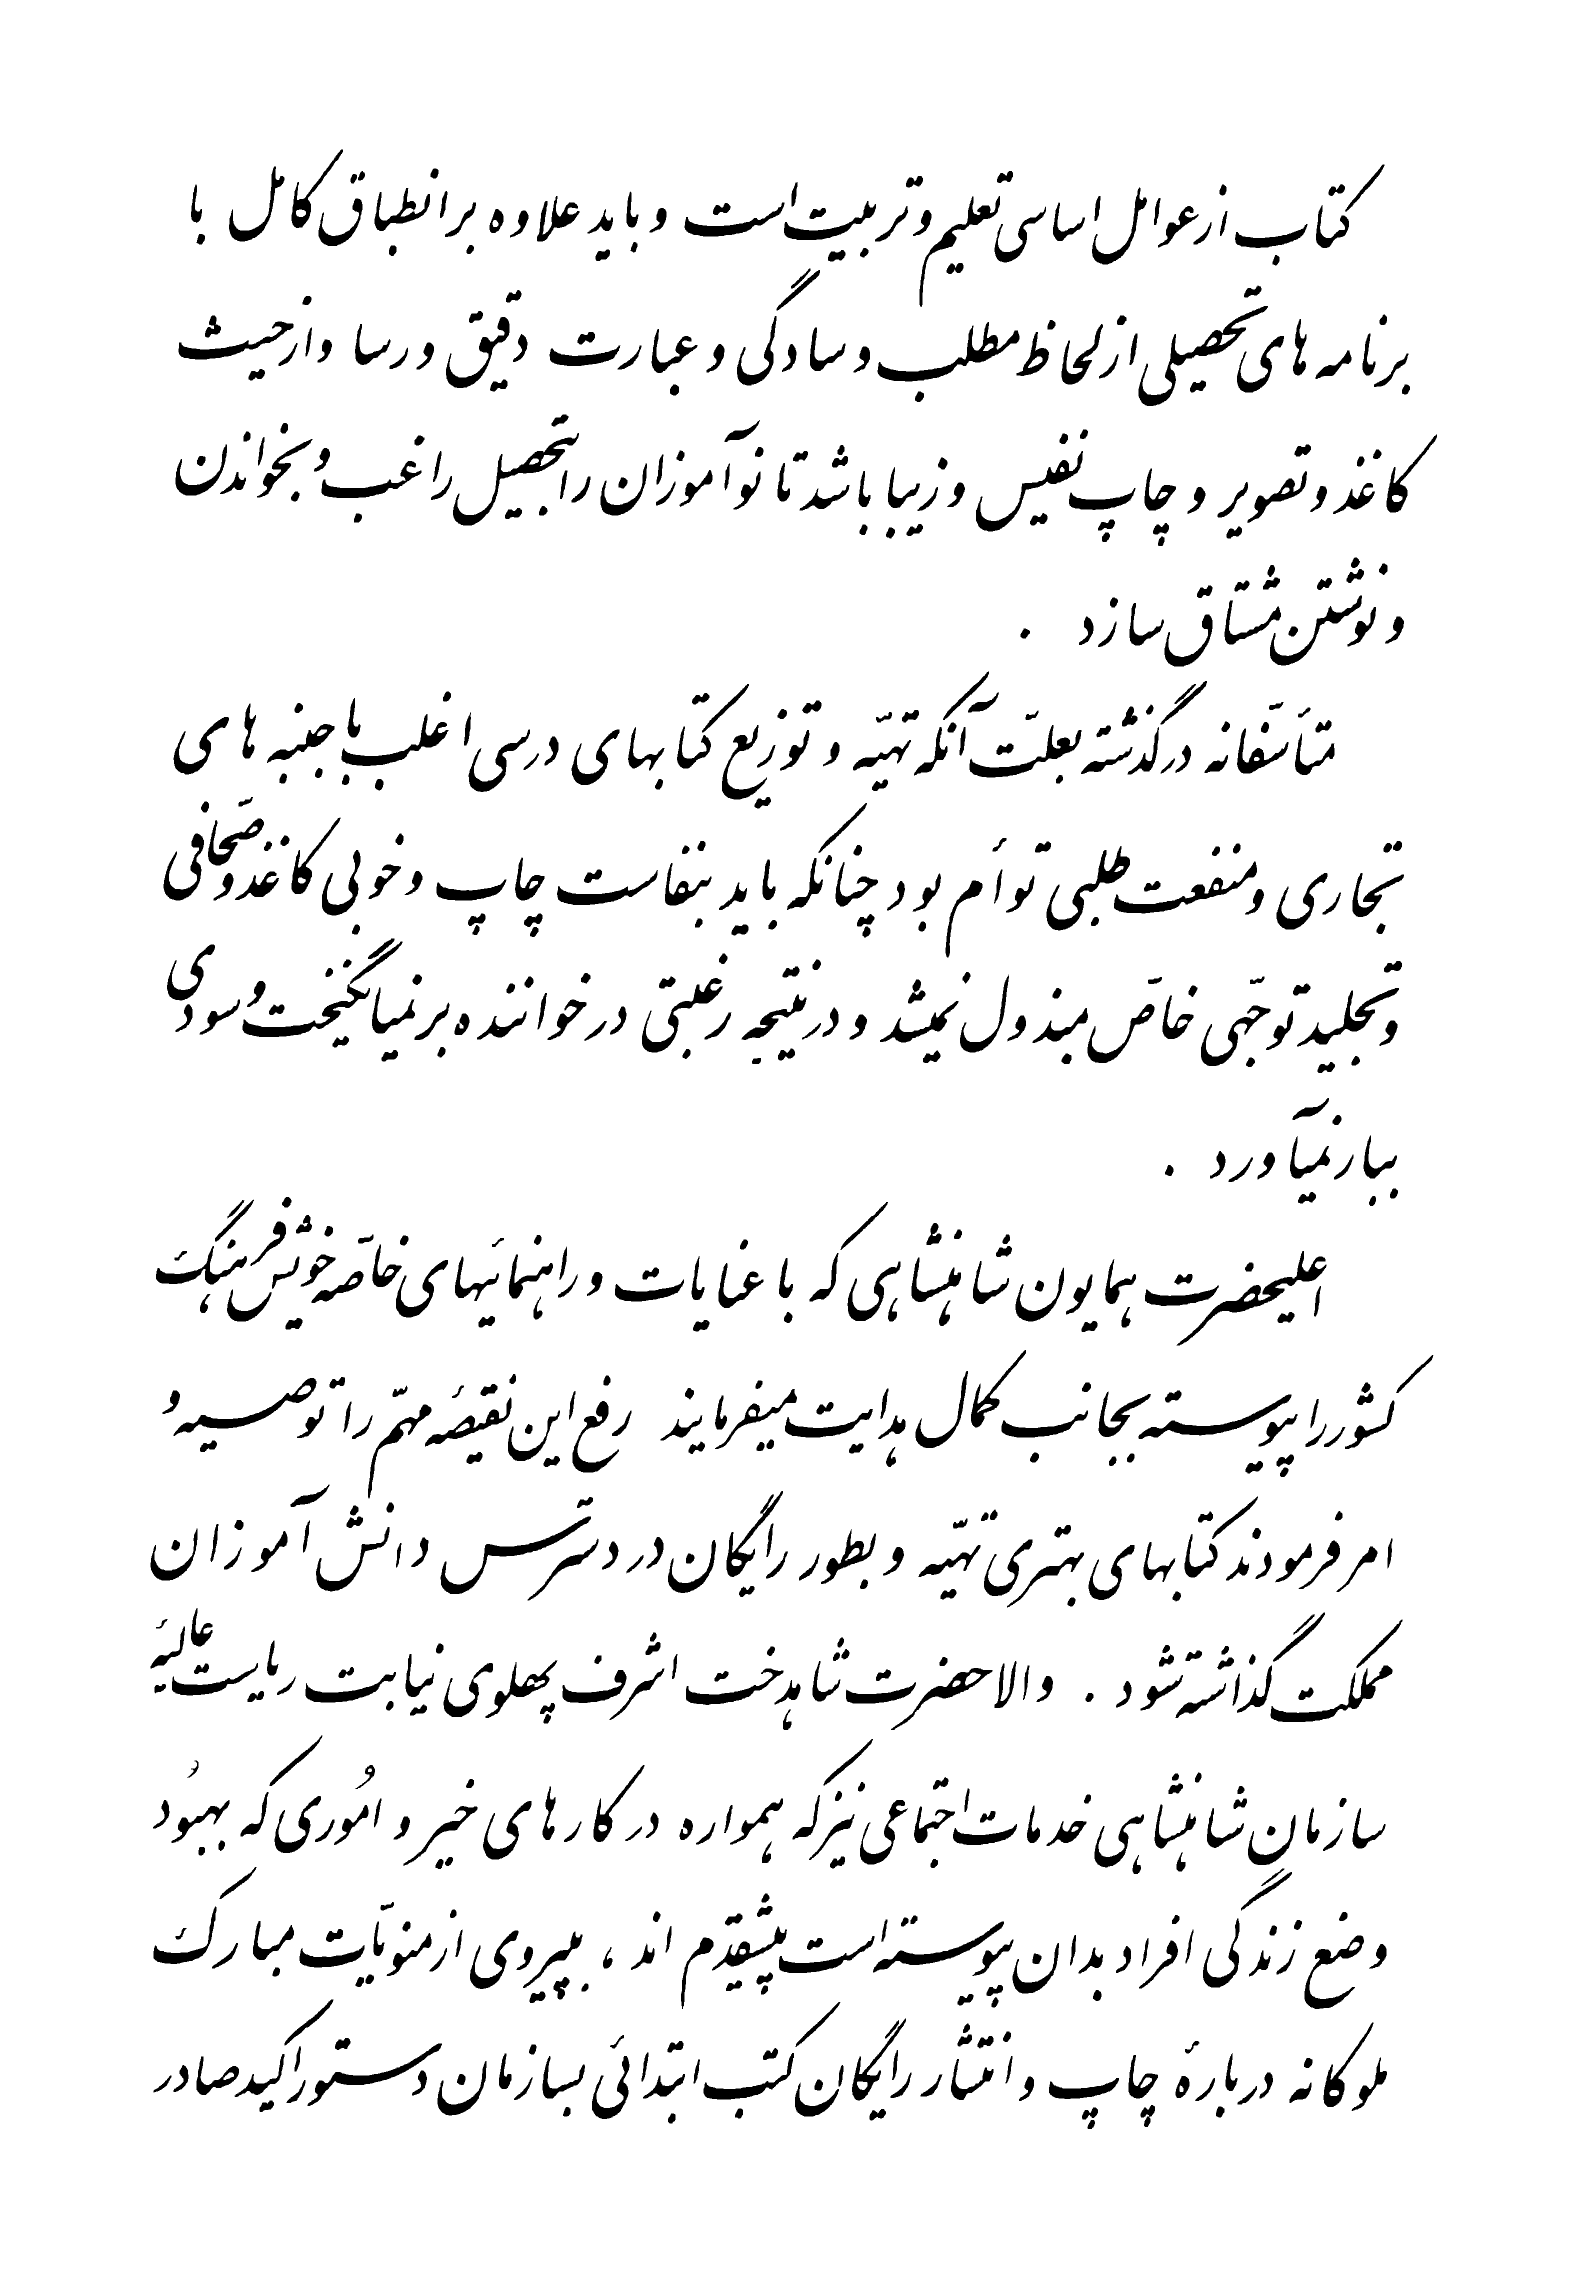 کتاب از عوامل اساسی تعلیم و تربیت است و باید علاوه بر انطباق کامل با
برنامه های تحصیلی از لحاظ مطلب و سادگی و عبارت دقیق و رسا و از حیث
کاغذ و تصویر و چاپ نفیس و زیبا باشد تا نوآموزان را بتحصیل راغب و بخواندن
و نوشتن مشتاق سازد .
متأسّفانه در گذشته بعلّت آنکه تهیّه و توزیع کتابهای درسی اغلب با جنبه های
تجاری و منفعت طلبی توأم بود چنانکه باید بنفاست چاپ و خوبی کاغذ و صحّافی
و تجلید توجّهی خاصّ مبذول نمیشد و در نتیجه رغبتی در خواننده بر نمیانگیخت و سودی
ببار نمیآورد .
اعلیحضرت همایون شاهنشاهی که با عنایات و راهنمائیهای خاصّه خویش فرهنگ
کشور را پیوسته بجانب کمال هدایت میفرمایند رفع این نقیصۀ مهمّ را توصیه و
امر فرمودند کتابهای بهتری تهیّه و بطور رایگان در دسترس دانش آموزان
مملکت گذاشته شود . والاحضرت شاهدخت اشرف پهلوی نیابت ریاست عالیۀ
سازمان شاهنشاهی خدمات اجتماعی نیز که همواره در کارهای خیر و اُموری که بهبُود
وضع زندگی افراد بدان پیوسته است پیشقدّم اند ، بپیروی از منویّات مبارک
ملوکانه دربارۀ چاپ و انتشار رایگان کتب ابتدائی بسازمان دستور اکید صادر